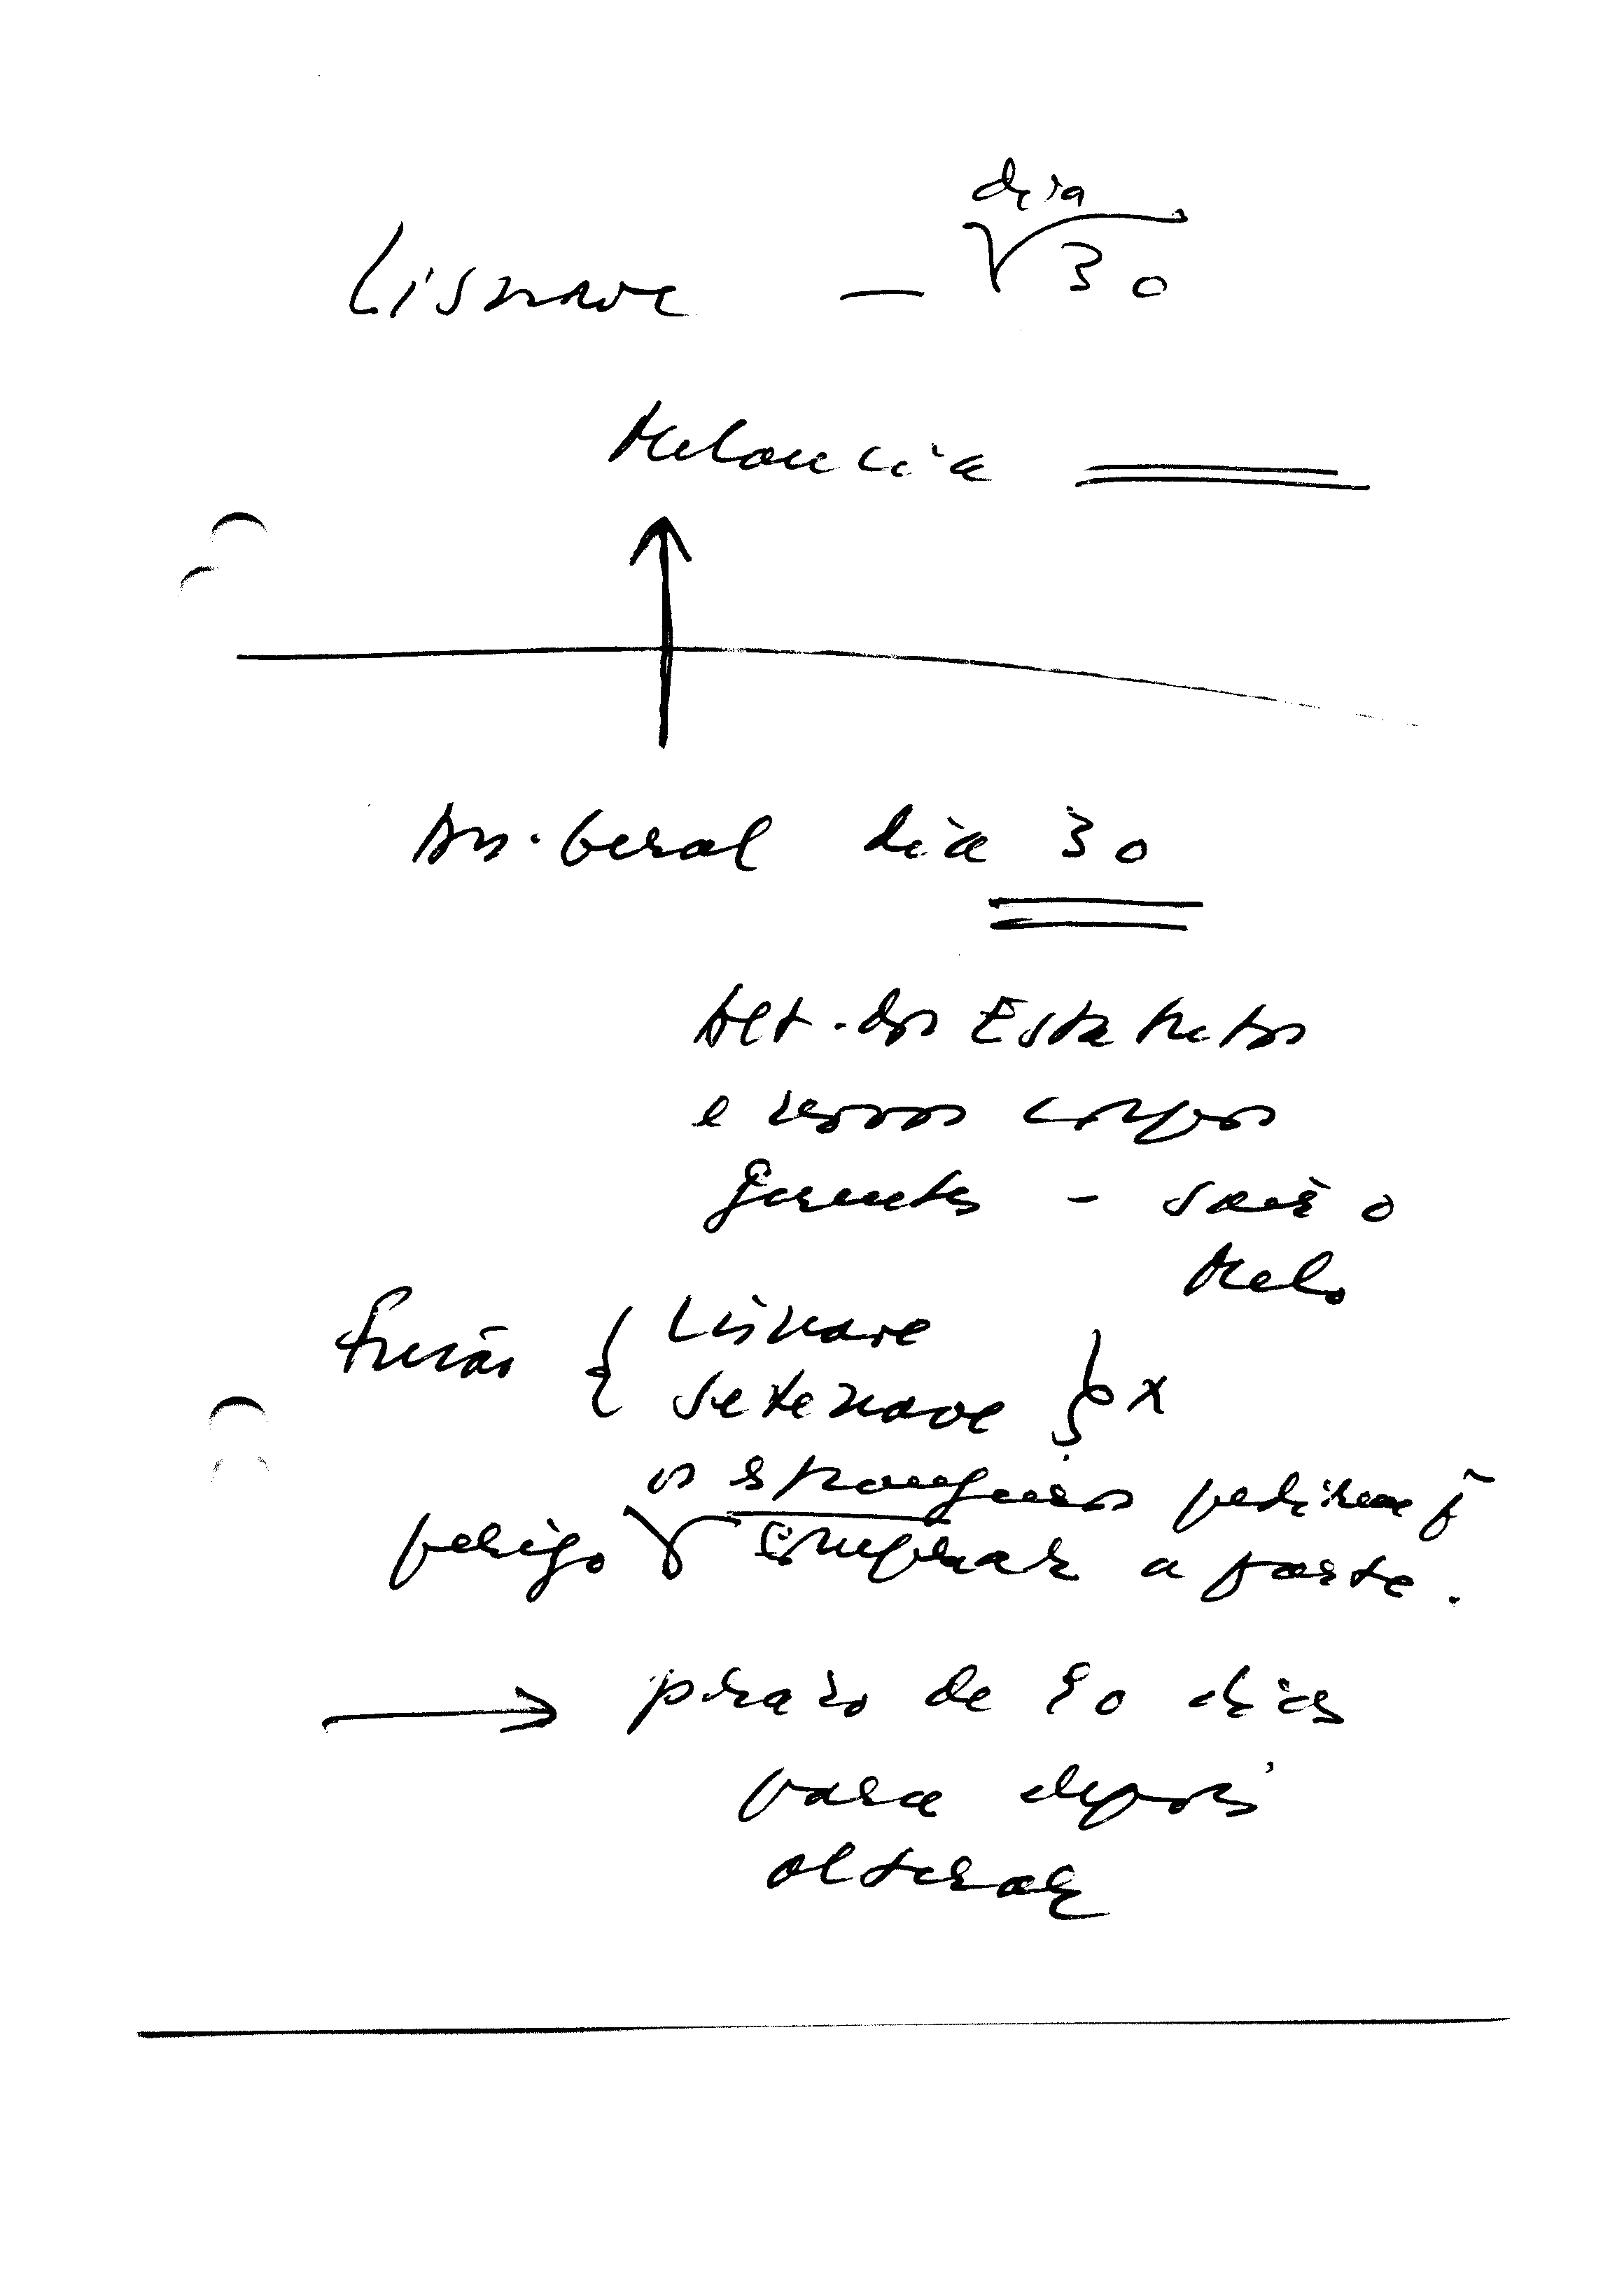 dia
Lisnave — 30
Melancia
Ass. Geral dia 30
Alt. dos Estatutos
e novos corpos
gerentes - sair o
Melo
fusão { Lisnave
Setenave } x
os estrangeiros pedirem p̃
perigo comprar a parte.
→ prazo de 90 dias
para depois
alterar